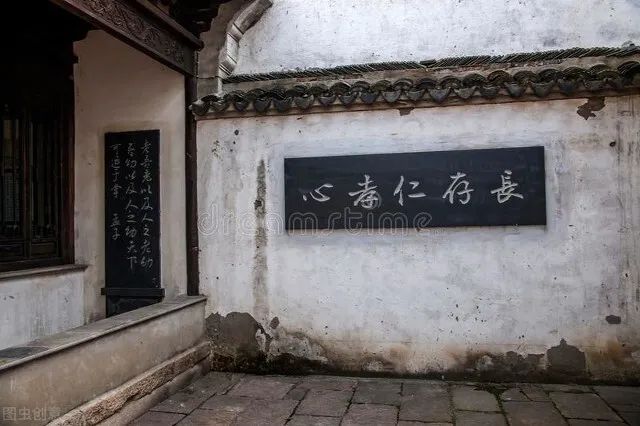 老吾老以及人之老幼
吾幼以及人之幼天下
可運于掌 孟子
長存仁孝心
dreamstime
图虫创意